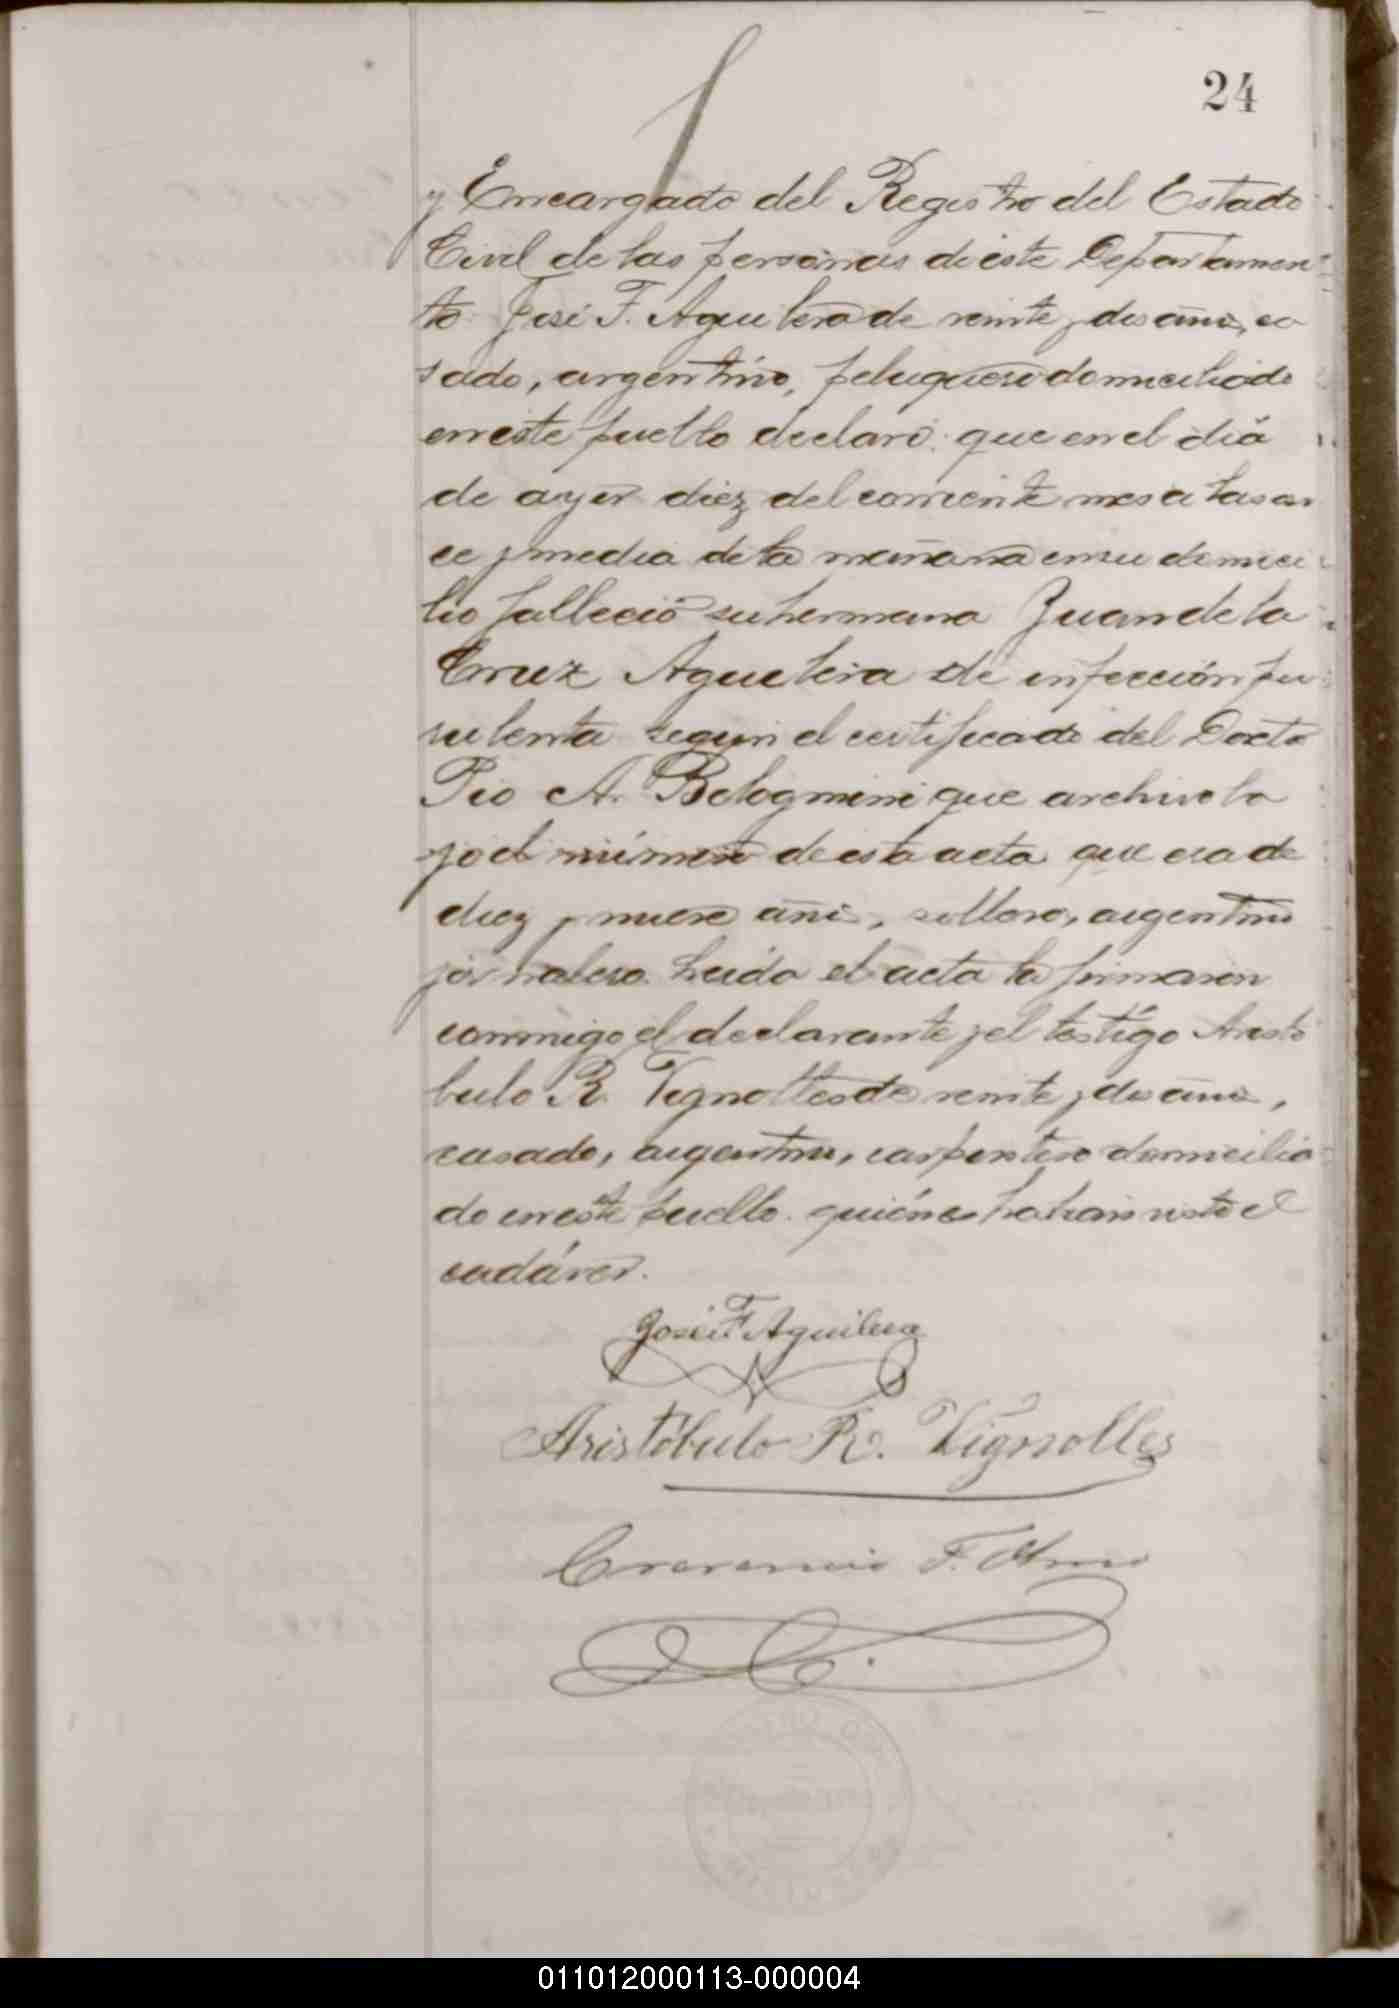 24
y Encargado del Registro del Estado
Civil de las personas de este Departamen
to José F. Aguilera de veinte y dos años, ca
sado, argentino, peluquero domiciliado
en este pueblo declaró: que en el dia
de ayer diez del corriente mes a las on
ce y media de la mañana en su domici
lio falleció su hermano Juan de la
Cruz Aguilera de infección pu
rulenta segun el certificado del Doctor
Pio A. Bologmini que archivo ba
jo el número de esta acta que era de
diez y nueve años, soltero, argentino
jornalero. Leida el acta la firmaron
conmigo el declarante y el testigo Aristó
bulo R. Vignolles de veinte y dos años,
casado, argentino, carpintero domicilia
do en este pueblo. quiénes habian visto el
cadáver.
José F Aguilera
Aristóbulo R. Vignolles
F.
011012000113-000004